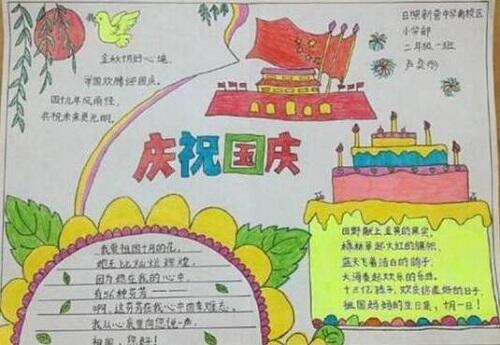 金秋十月好心境,
举国欢腾迎国庆。
四十九年风雨程,
共祝未来更光明。
日照新营中学南校区
小学部
二年级一班
庆祝国庆
我爱祖国十月的花,
晚天比灿烂辉煌
因为您在我的心中
有56种芬芳
啊,这芬芳在我心中回牵难忘,
我从心底里向您说一声
祖国,您好!
田野献上金黄的果实,
森林举起火红的旗帜,
蓝天飞着洁白的鸽子,
大海奏起欢乐的乐曲。
十三亿孩子,欢庆这美好的日子,
祖国妈妈的生日是,十月一日!